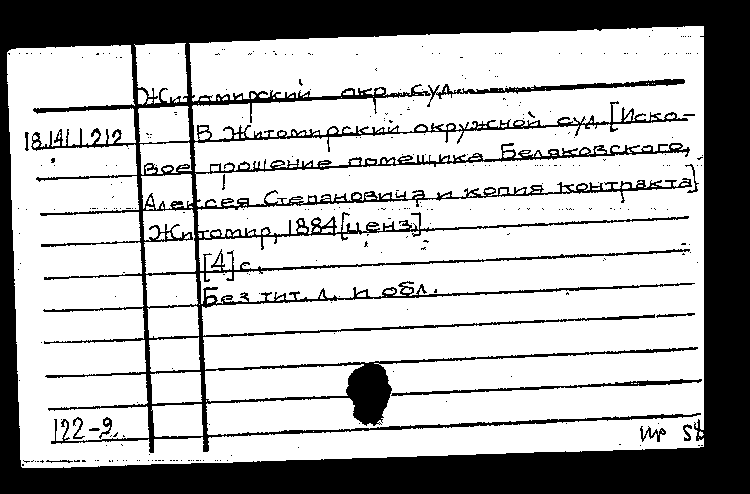 Житомирский окр. суд.
18.141.1.212.
В Житомирский окружной суд. [Иско-
вое прошение помещика Беляковского,
Алексея Степановича и копия контракта]
Житомир, 1884 [ценз.].
[4] с.
Без тит. л. и обл.
122-9.